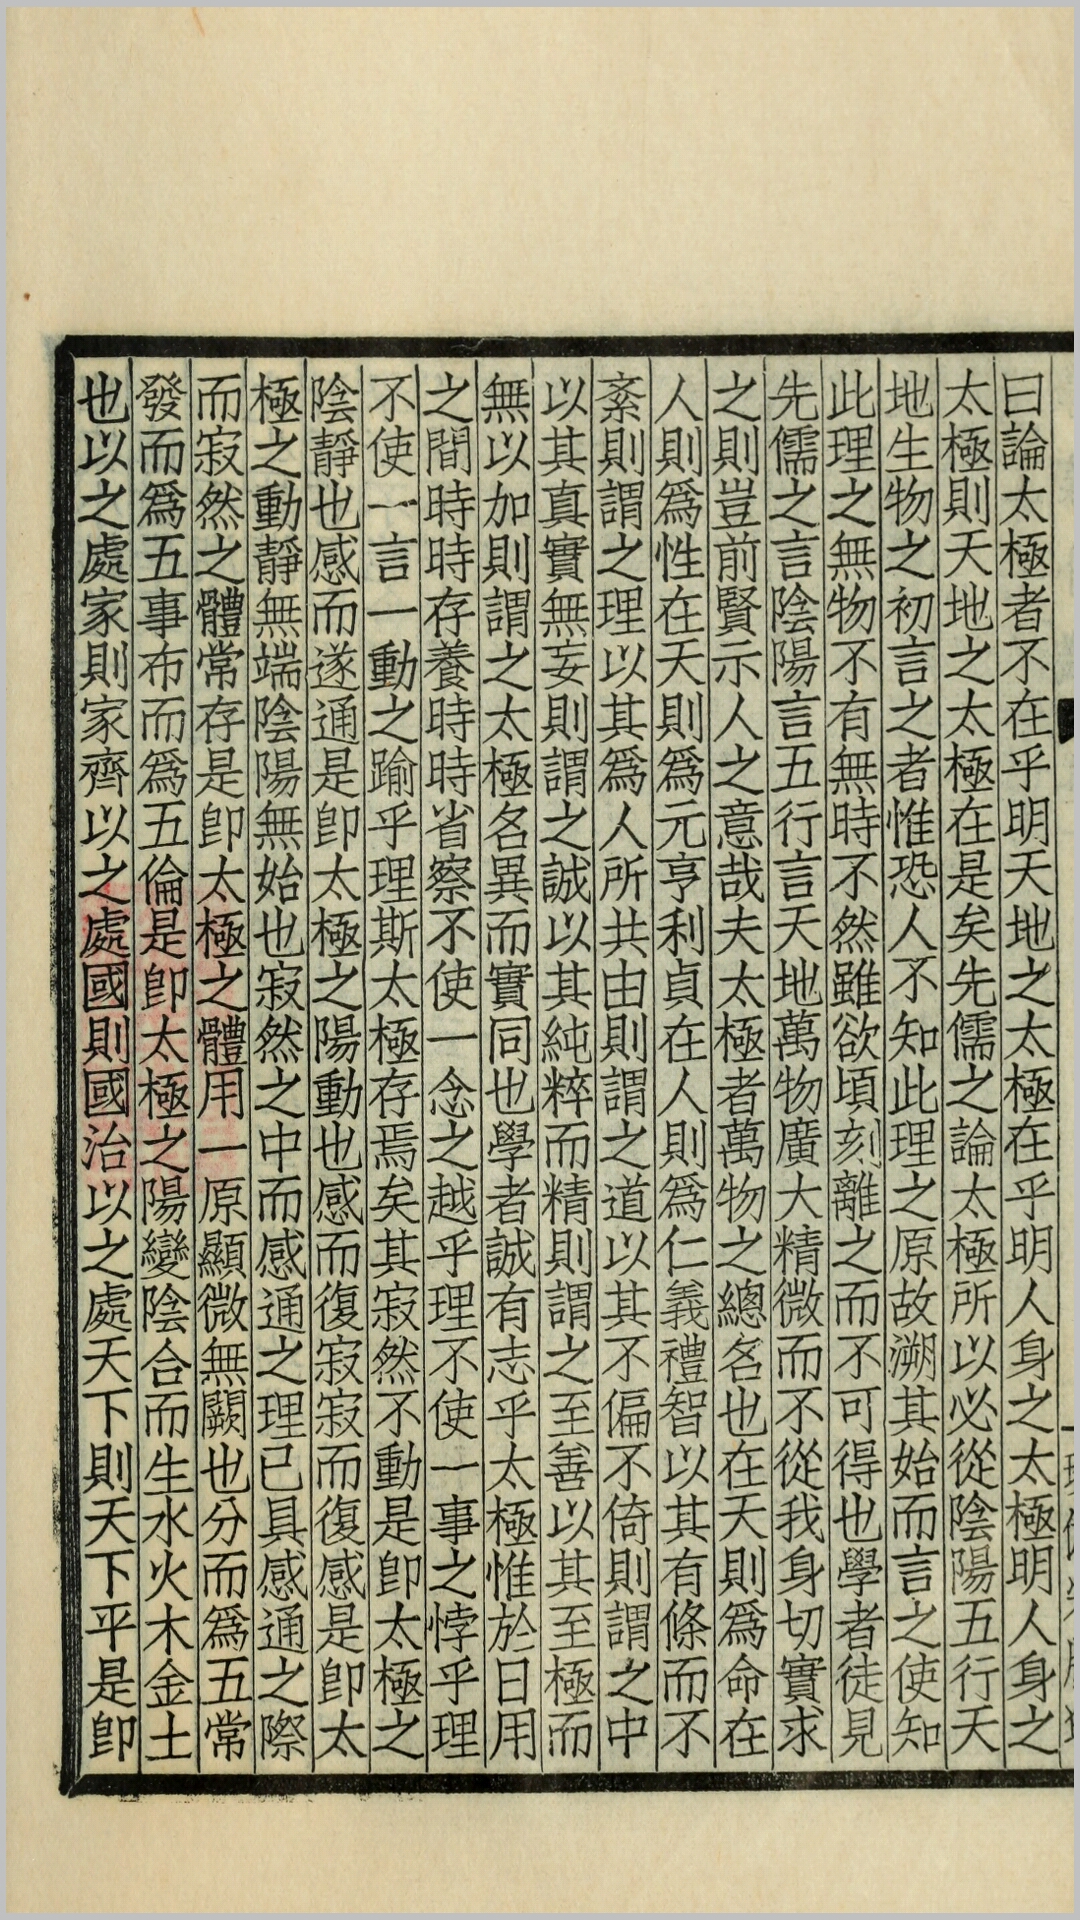 曰論太極者不在乎明天地之太極在乎明人身之太極明人身之
太極則天地之太極在是矣先儒之論太極所以必從陰陽五行天
地生物之初言之者惟恐人不知此理之原故溯其始而言之使知
此理之無物不有無時不然雖欲頃刻離之而不可得也學者徒見
先儒之言陰陽言五行言天地萬物廣大精微而不從我身切實求
之則豈前賢示人之意哉夫太極者萬物之總名也在天則爲命在
人則爲性在天則爲元亨利貞在人則爲仁義禮智以其有條而不
紊則謂之理以其爲人所共由則謂之道以其不偏不倚則謂之中
以其真實無妄則謂之誠以其純粹而精則謂之至善以其至極而
無以加則謂之太極名異而實同也學者誠有志乎太極惟於日用
之間時時存養時時省察不使一念之越乎理不使一事之悖乎理
不使一言一動之踰乎理斯太極存焉矣其寂然不動是卽太極之
陰靜也感而遂通是卽太極之陽動也感而復寂寂而復感是卽太
極之動靜無端陰陽無始也寂然之中而感通之理已具感通之際
而寂然之體常存是卽太極之體用一原顯微無闕也分而爲五常
發而爲五事布而爲五倫是卽太極之陽變陰合而生水火木金土
也以之處家則家齊以之處國則國治以之處天下則天下平是卽